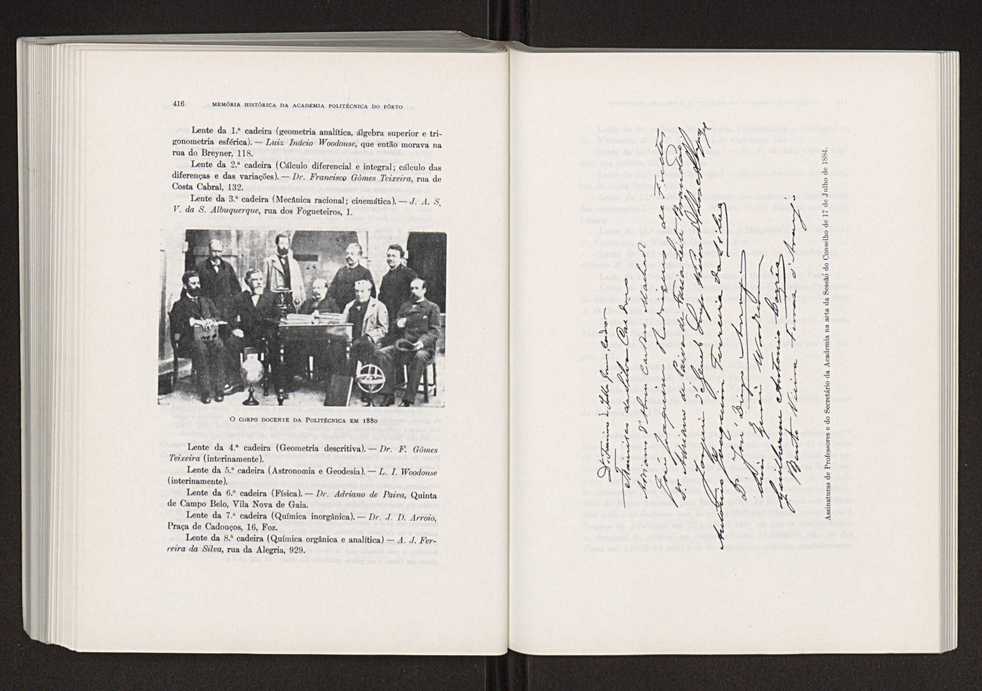 416 MEMÓRIA HISTÓRICA DA ACADEMIA POLITÉCNICA DO PÔRTO
Lente da 1.ª cadeira (geometria analítica, álgebra superior e tri-
gonometria esférica). — Luiz Inácio Woodouse, que então morava na
rua do Breyner, 118.
Lente da 2.ª cadeira (Cálculo diferencial e integral; cálculo das
diferenças e das variações). — Dr. Francisco Gômes Teixeira, rua de
Costa Cabral, 132.
Lente da 3.ª cadeira (Mecânica racional; cinemática). — J. A. S.
V. da S. Albuquerque, rua dos Fogueteiros, 1.
O CORPO DOCENTE DA POLITÉCNICA EM 1880
Lente da 4.ª cadeira (Geometria descritiva). — Dr. F. Gômes
Teixeira (interinamente).
Lente da 5.ª cadeira (Astronomia e Geodesia). — L. I. Woodouse
(interinamente).
Lente da 6.ª cadeira (Física). — Dr. Adriano de Paiva, Quinta
de Campo Belo, Vila Nova de Gaia.
Lente da 7.ª cadeira (Química inorgânica). — Dr. J. D. Arroio,
Praça de Cadouços, 16, Foz.
Lente da 8.ª cadeira (Química orgânica e analítica) — A. J. Fer-
reira da Silva, rua da Alegria, 929.
Francisco
Joaquim Rodrigues de Freitas
Dr. Adriano de Paiva de Faria Leite Brandão
Antonio Joaquim Ferreira da Silva
Dr. José Diogo Arroyo
Luiz Ignacio Woodhouse
Guilherme Antonio Corrêa
Bento Vieira
Assinaturas de Professores e do Secretário da Academia na acta da Sessão do Conselho de 17 de Julho de 1884.